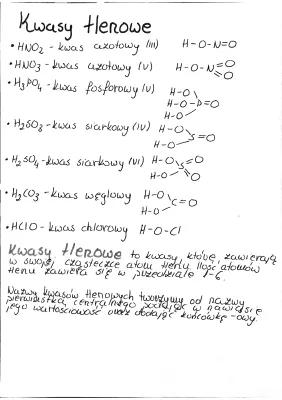 Kwasy tlenowe
• HNO₂ - kwas azotowy (III) H-O-N=O
• HNO₃ - kwas azotowy (V) H-O-N=O =O
• H₃PO₄ - kwas fosforowy (V) H-O H-O-P=O H-O
• H₂SO₃ - kwas siarkowy (IV) H-O H-O S=O
• H₂SO₄ - kwas siarkowy (VI) H-O H-O S=O =O
• H₂CO₃ - kwas węglowy H-O H-O C=O
• HClO - kwas chlorowy H-O-Cl
Kwasy tlenowe to kwasy, które zawierają
w swojej cząsteczce atomy tlenu. Ilość atomów
tlenu zawiera się w przedziale 1-6.
Nazwy kwasów tlenowych tworzymy od nazwy
pierwiastka centralnego podając w nawiasie
jego wartościowość oraz dodając końcówkę -owy.